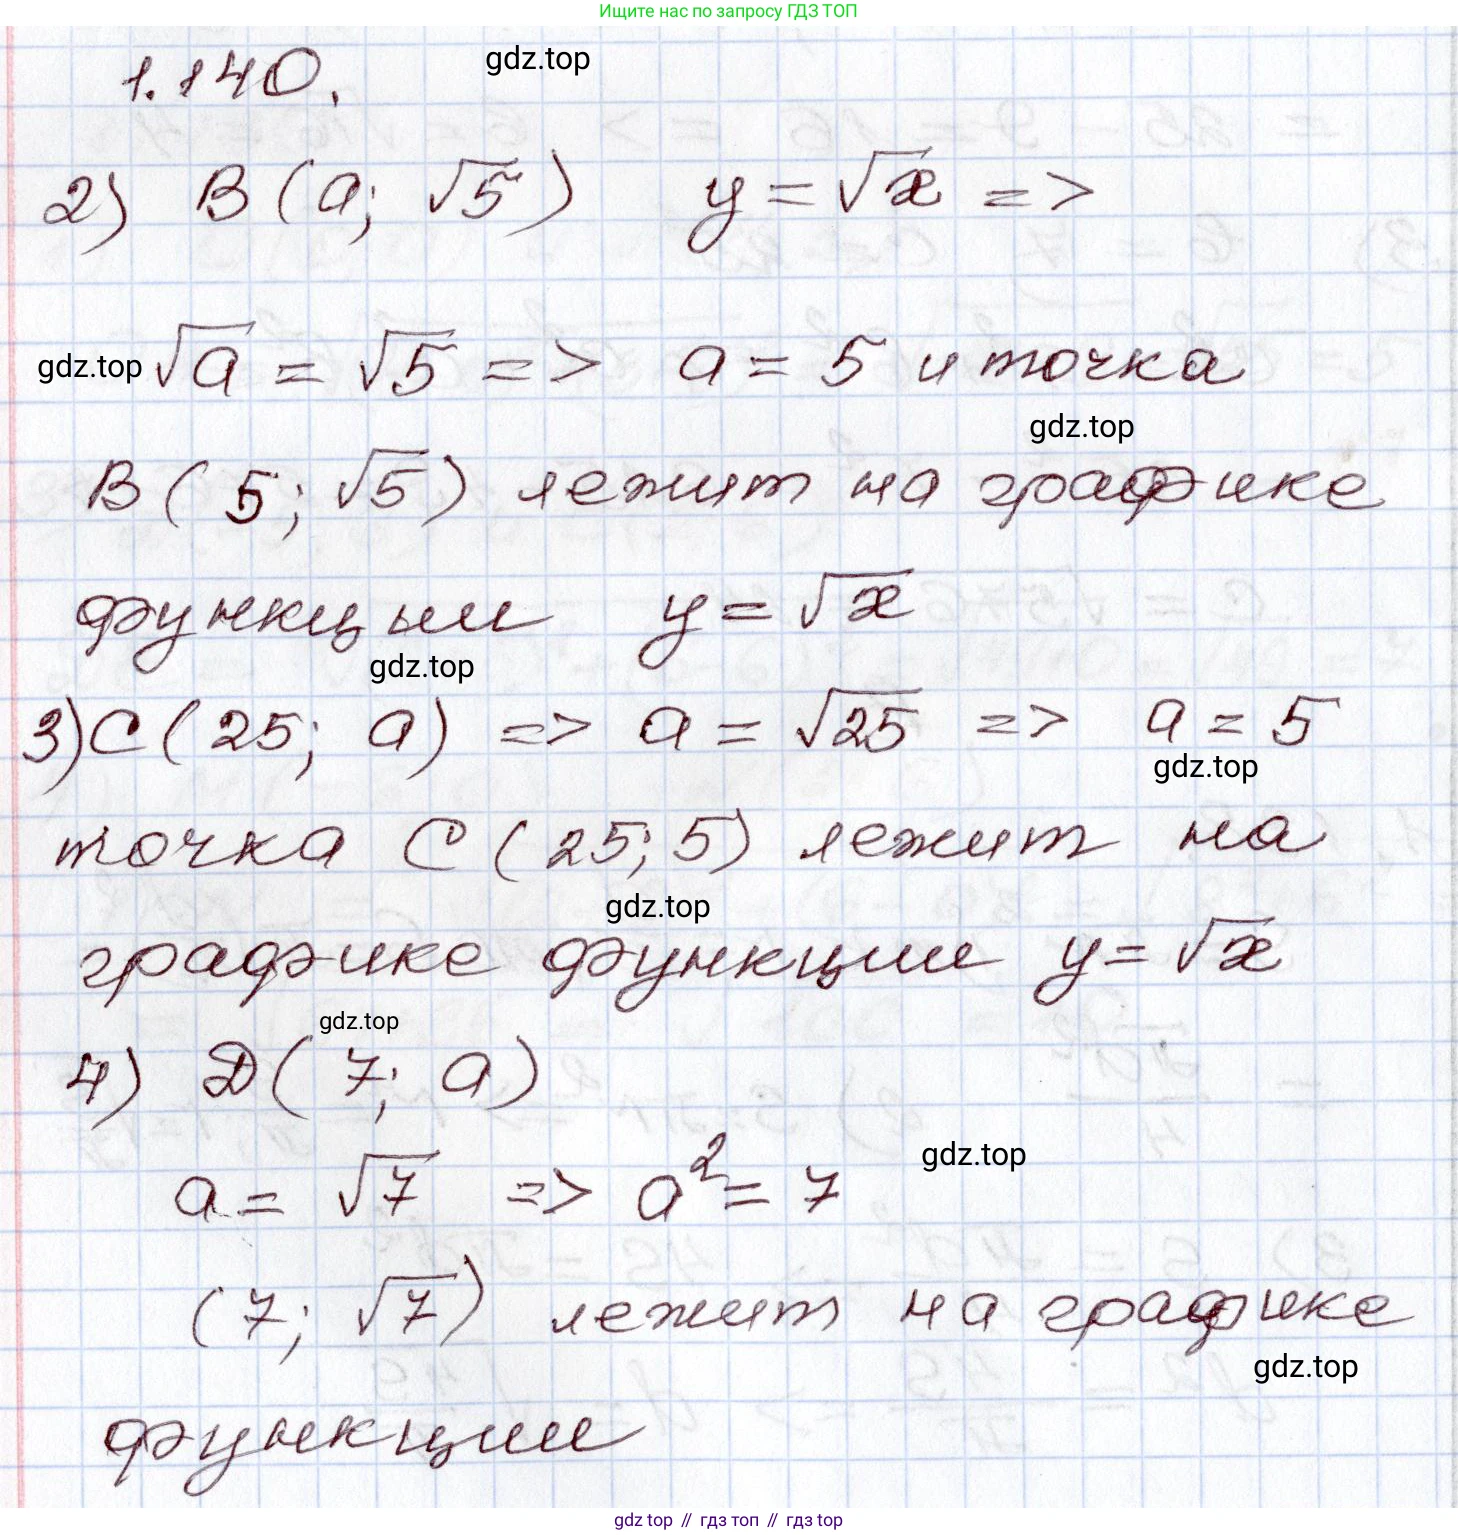 Ищите нас по запросу ГДЗ ТОП
1.140. gdz.top
2) В (а; √5) y = √x =>
gdz.top √a = √5 => a = 5 и точка
gdz.top
В ( 5; √5) лежит на графике
функции y = √x
gdz.top
3) С ( 25; а) => a = √25 => a = 5
gdz.top
точка С (25; 5) лежит на
gdz.top
графике функции y = √x
gdz.top
4) D ( 7; а)
gdz.top
a = √7 => a² = 7
(7; √7) лежит на графике
gdz.top
функции
gdz top // гдз топ // гдз top